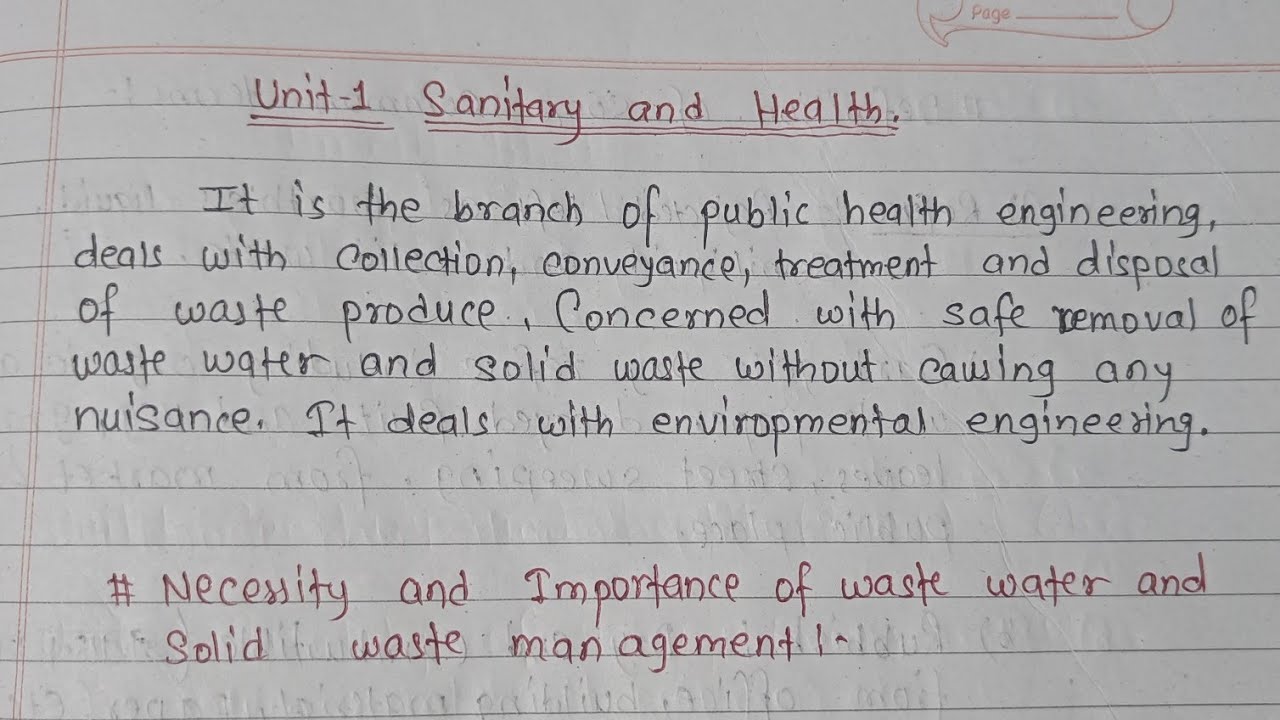 Page
Unit-1 Sanitary and Health.
It is the branch of public health engineering,
deals with Collection, conveyance, treatment and disposal
of waste produce. Concerned with safe removal of
waste water and solid waste without causing any
nuisance. It deals with enviropmental engineering.
# Necessity and Importance of waste water and
Solid waste management :-